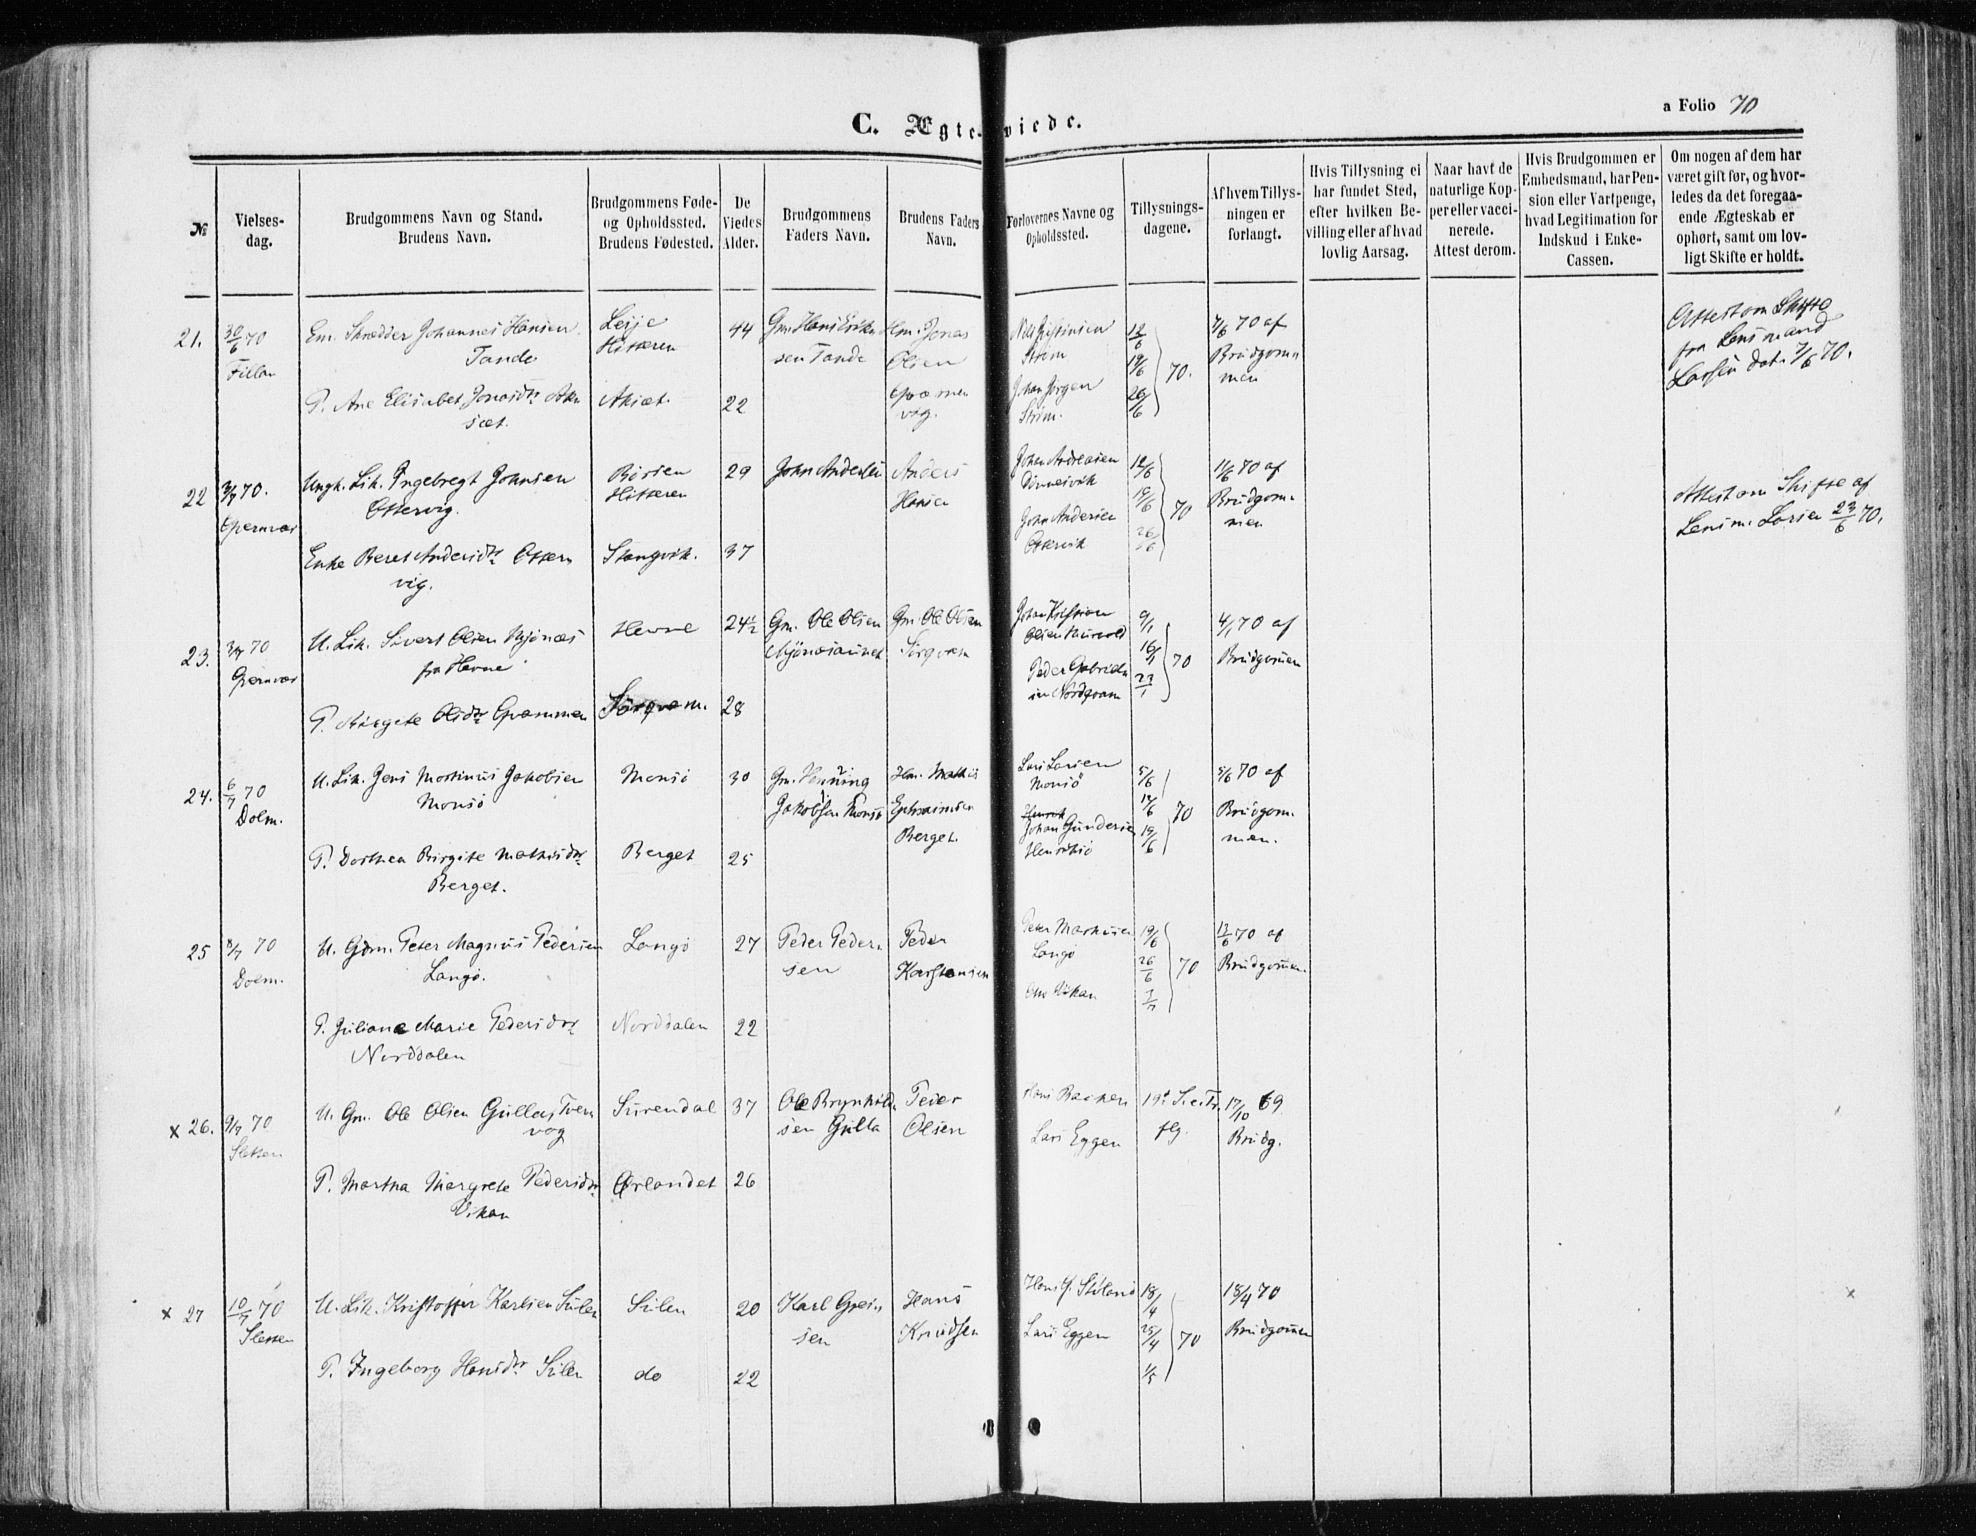 C. Ægte-viede.
a Folio 70
№
Vielses-
dag.
Brudgommens Navn og Stand.
Brudens Navn.
Brudgommens Føde-
og Opholdssted.
Brudens Fødested.
De
Viedes
Alder.
Brudgommens
Faders Navn.
Brudens Faders
Navn.
Forlovernes Navne og
Opholdssted.
Tillysnings-
dagene.
Af hvem Tillys-
ningen er
forlangt.
Hvis Tillysning ei
har fundet Sted,
efter hvilken Be-
villing eller af hvad
lovlig Aarsag.
Naar havt de
naturlige Kop-
per eller vacci-
nerede.
Attest derom.
Hvis Brudgommen er
Embedsmand, har Pen-
sion eller Vartpenge,
hvad Legitimation for
Indskud i Enke-
Cassen.
Om nogen af dem har
været gift før, og hvor-
ledes da det foregaa-
ende Ægteskab er
ophørt, samt om lov-
ligt Skifte er holdt.
21. 30/6 70 Em. Skrædder Johannes Hansen 44 Gm. Hans Erik- Jonas 12/6 7/6 70 af Attest om Skifte
Fillan Tande Hitteren sen Tande Olsen Strøm 19/6 70. Brudgom- fra Lensmand
P. Ane Elisabet Jonasdtr 22 Kvæmen Johan Jørgen 26/6 men Larsen dat. 7/6 70.
sæt. vig. Strøm.
22 3/7 70. Ungk. Lik. Ingebregt Johnsen Børsen 29 John Andersen Anders John Andreasen 12/6 11/6 70 af Attest om Skifte af
Ottervig. Hitteren Hansen 19/6 70 Brudgom- Lensm. Larsen 23/6 70.
John Andersen 26/6 men
Enke Beret Andersdtr Otter- Stangvik. 37
vig.
23. 3/7 70 U. Lik. Sivert Olsen Mjønæs Hevne 24½ Gm. Ole Olsen Gm. Ole Olsen 9/1 4/1 70 af
fra Hevne Mjønesaunet Sørqvam Olsen 16/1 70 Brudgomen
Peder Gabriel- 23/1
P. Birgete Olsdtr Qvammen Sørqvam. 28 sen Nordqvam
24. 6/7 70 U. Lik. Jens Martinus Jakobsen Monsø 30 Gm. Henning Hm. Mathis Lars Larsen 5/6 5/6 70 af
Dolm. Monsø Jakobsen Monsø Ephraimsen Monsø 12/6 70 Brudgom-
Berget. Johan Gundersen 19/6 men.
P. Dorthea Birgite Mathisdtr Berget 25
Berget.
25 8/7 70 U. Gdm. Peter Magnus Pedersen Langø 27 Peder Peder- Peder Peter Markusen 19/6 12/6 70 af
Dolm. Langø. sen Karstensen Langø 26/6 70 Brudgomen.
Otto Vikan 3/7
P. Juliane Marie Pedersdtr Norddalen 22
Norddalen
x 26. 9/7 70 U. Gm. Ole Olsen Gullas Surendal 37 Ole Brynhild- Peder Hans Backen 19de S. e. Tr. 17/10 69
Sletten vog sen Gulla Olsen Lars Eggen flg. Brudg.
P. Martha Margrete Pedersdtr Ørlandet 26
Vikan
x 27 10/7 70 U. Lik. Kristoffer Karlsen Sulen Sulen 20 Karl Grein- Hans 18/4 18/4 70
Sletten sen Knudsen Lars Eggen 25/4 70 Brudgomen
1/5
P. Ingeborg Hansdtr Sulen do 22